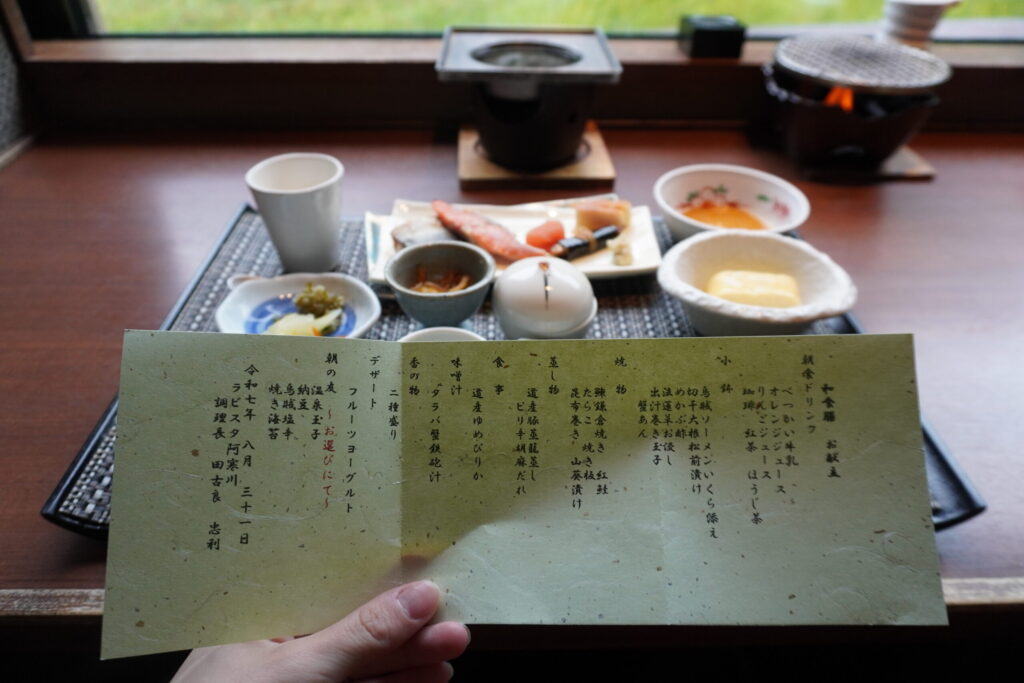 和食膳 お献立
朝食ドリンク
べつかい牛乳
オレンジジュース
りんごジュース
珈琲 紅茶 ほうじ茶
小鉢
烏賊ソーメンいくら添え
切干大根松前漬け
めかぶ酢
法蓮草お浸し
出汁巻き玉子
蟹あん
焼物
鰊鎌倉焼き 紅鮭
たらこ 焼き板
昆布巻き 山葵漬け
蒸し物
道産豚蒸籠蒸し
ピリ辛胡麻だれ
食事
道産ゆめぴりか
味噌汁
タラバ蟹鉄砲汁
香の物
二種盛り
デザート
フルーツヨーグルト
朝の友 ～お選びにて～
温泉玉子
納豆
烏賊塩辛
焼き海苔
令和七年 八月 三十一日
ラビスタ阿寒川
調理長 田古良 忠利